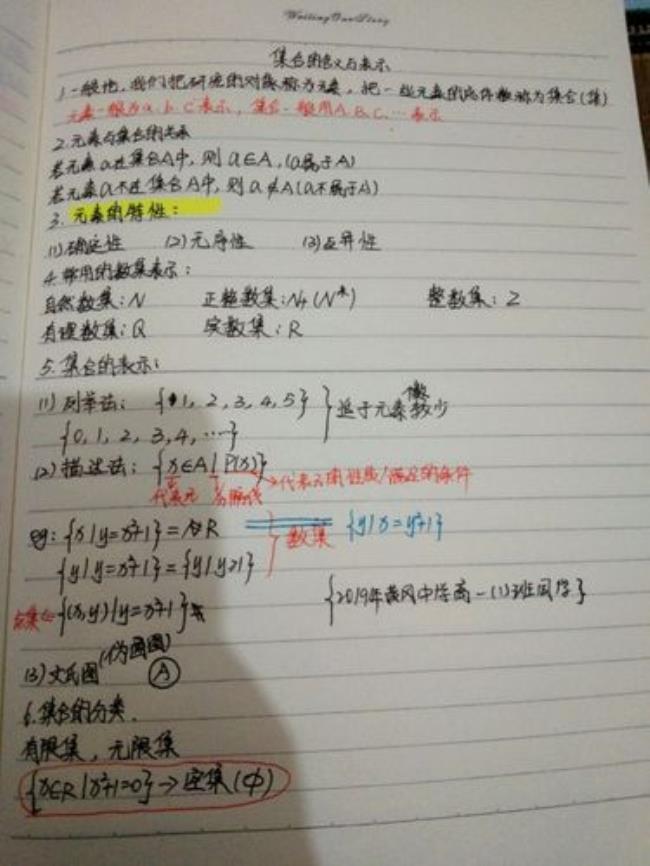 WritingOurStory
集合的含义与表示
1.一般地,我们把研究的对象称为元素,把一些元素的总体数称为集合(集)
元素一般为a、b、c表示,集合一般用A、B、C、…表示
2.元素与集合的关系
若元素a在集合A中,则a∈A,(a属于A)
若元素a不在集合A中,则a∉A(a不属于A)
3.元素的特性:
(1)确定性 (2)无序性 (3)互异性
4.常用的数集表示:
自然数集:N 正整数集:N+(N*) 整数集:Z
有理数集:Q 实数集:R
5.集合的表示:
(1)列举法:{1,2,3,4,5} 适于元素较少
{0,1,2,3,4,…}
(2)描述法:{x∈A|P(x)}
代表元 分隔线 →代表元的性质/满足的条件
eg:{x|y=x²+1}=R 数集 {y|x=y²+1}
{y|y=x²+1}={y|y≥1}
点集⇐{(x,y)|y=x²+1} {2019年黄冈中学高一(1)班同学}
(3)文氏图 A
6.集合的分类.
有限集,无限集
{x∈R|x²+1=0}→空集(Φ)